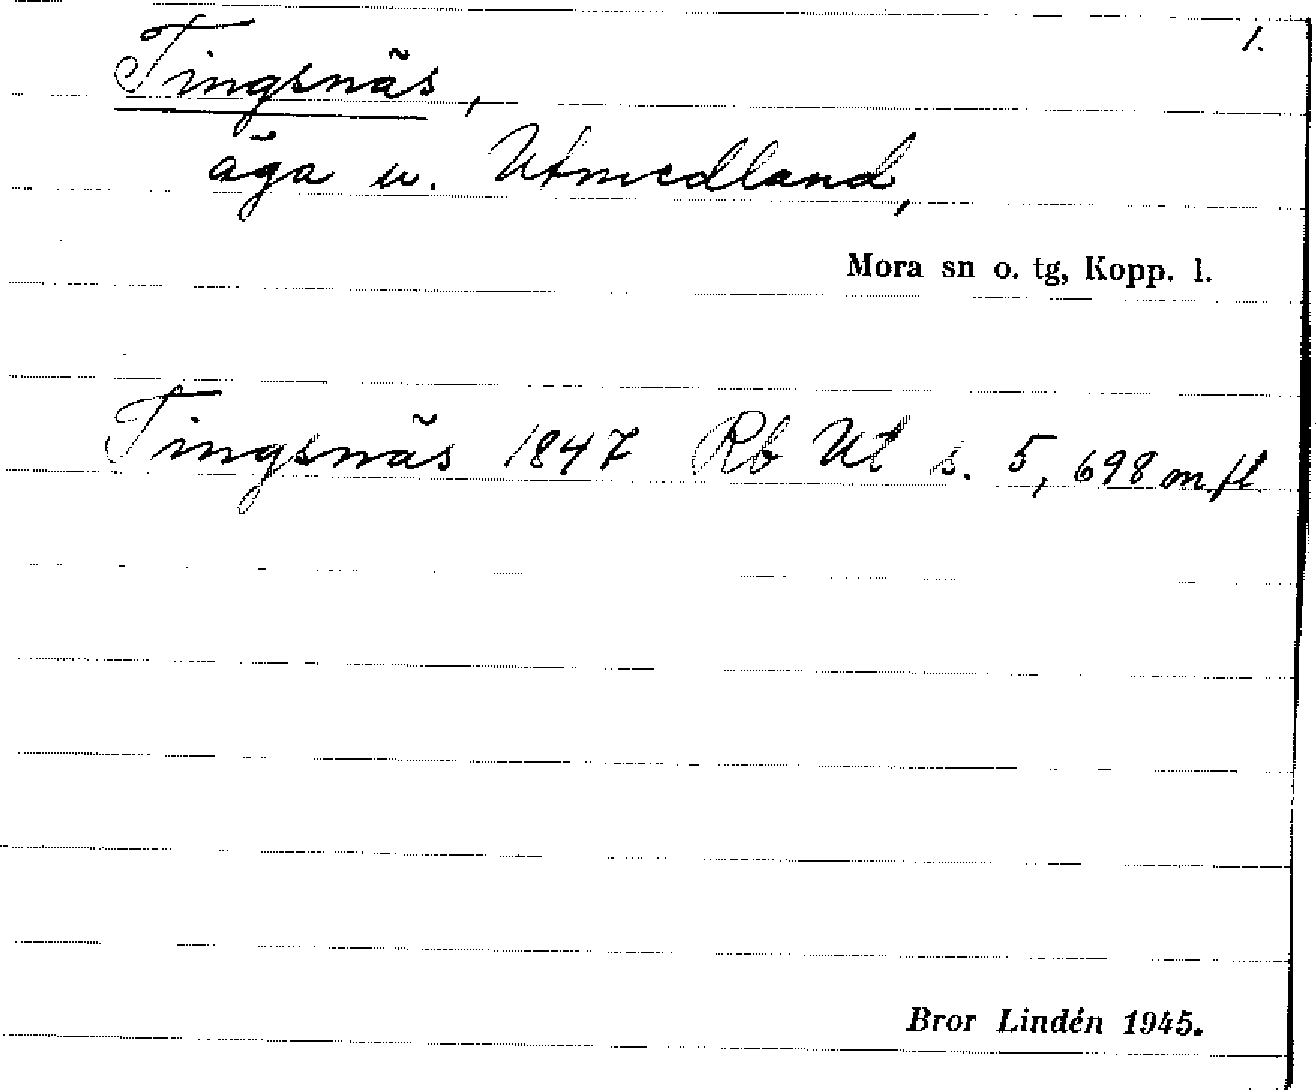 1.
Tingsnäs,
äga u. Utmedland,
Mora sn o. tg, Kopp. l.
Tingsnäs 1847 Rb Ut s. 5, 698 m. fl.
Bror Lindén 1945.